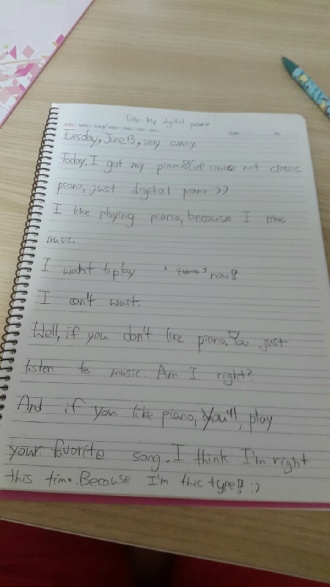 Title: My digital piano
Tuesday, June 13, very sunny.
Today, I got my piano! Of course not classic
piano, just digital piano >>
I like playing piano, because I like
music.
I want to play now!!
I can't wait.
Well, if you don't like piano, You just
listen to music. Am I right?
And if you like piano, You'll, play
your favorite song. I think I'm right
this time. Because I'm this type!! :)